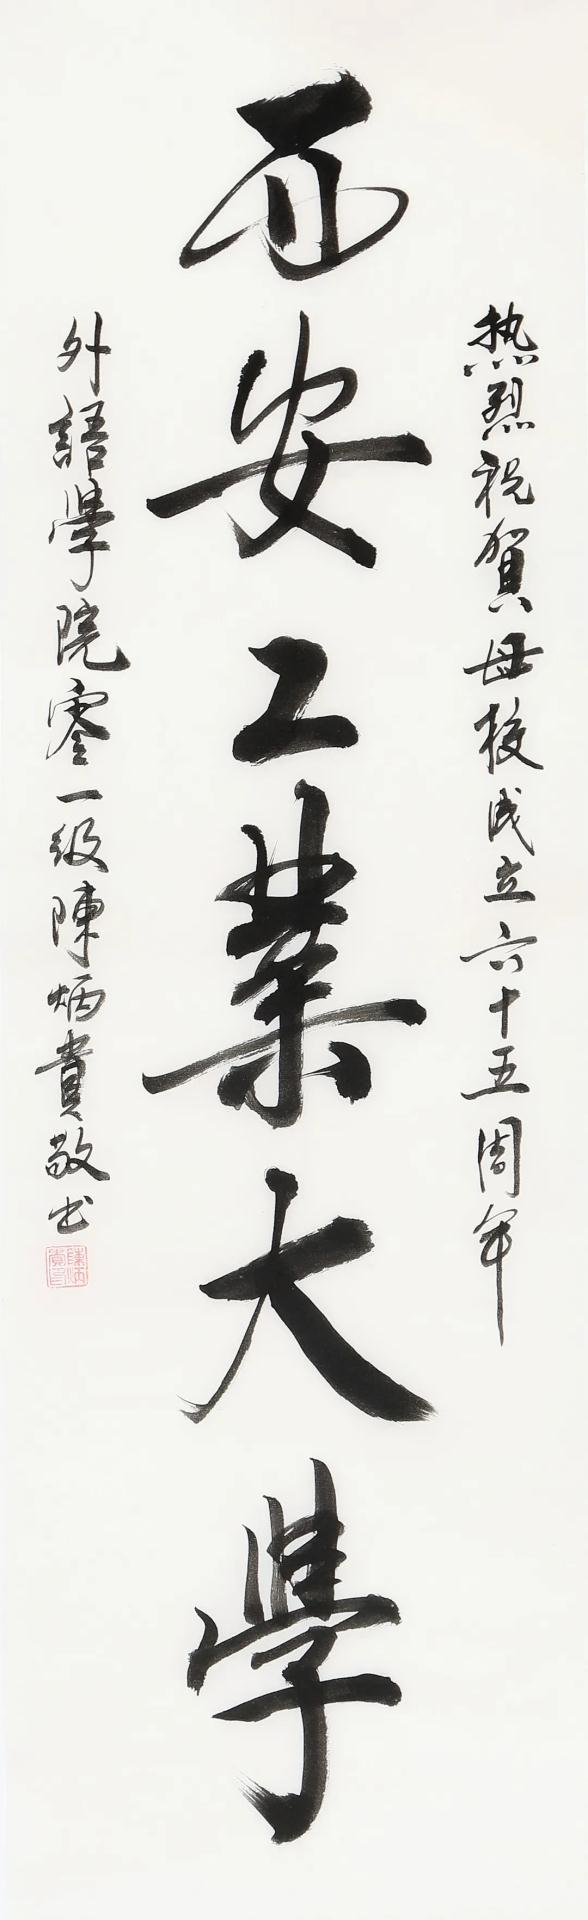 热烈祝賀母校成立六十五周年
西安工業大學
外語學院零一级陳炳貴敬书
陳炳貴印